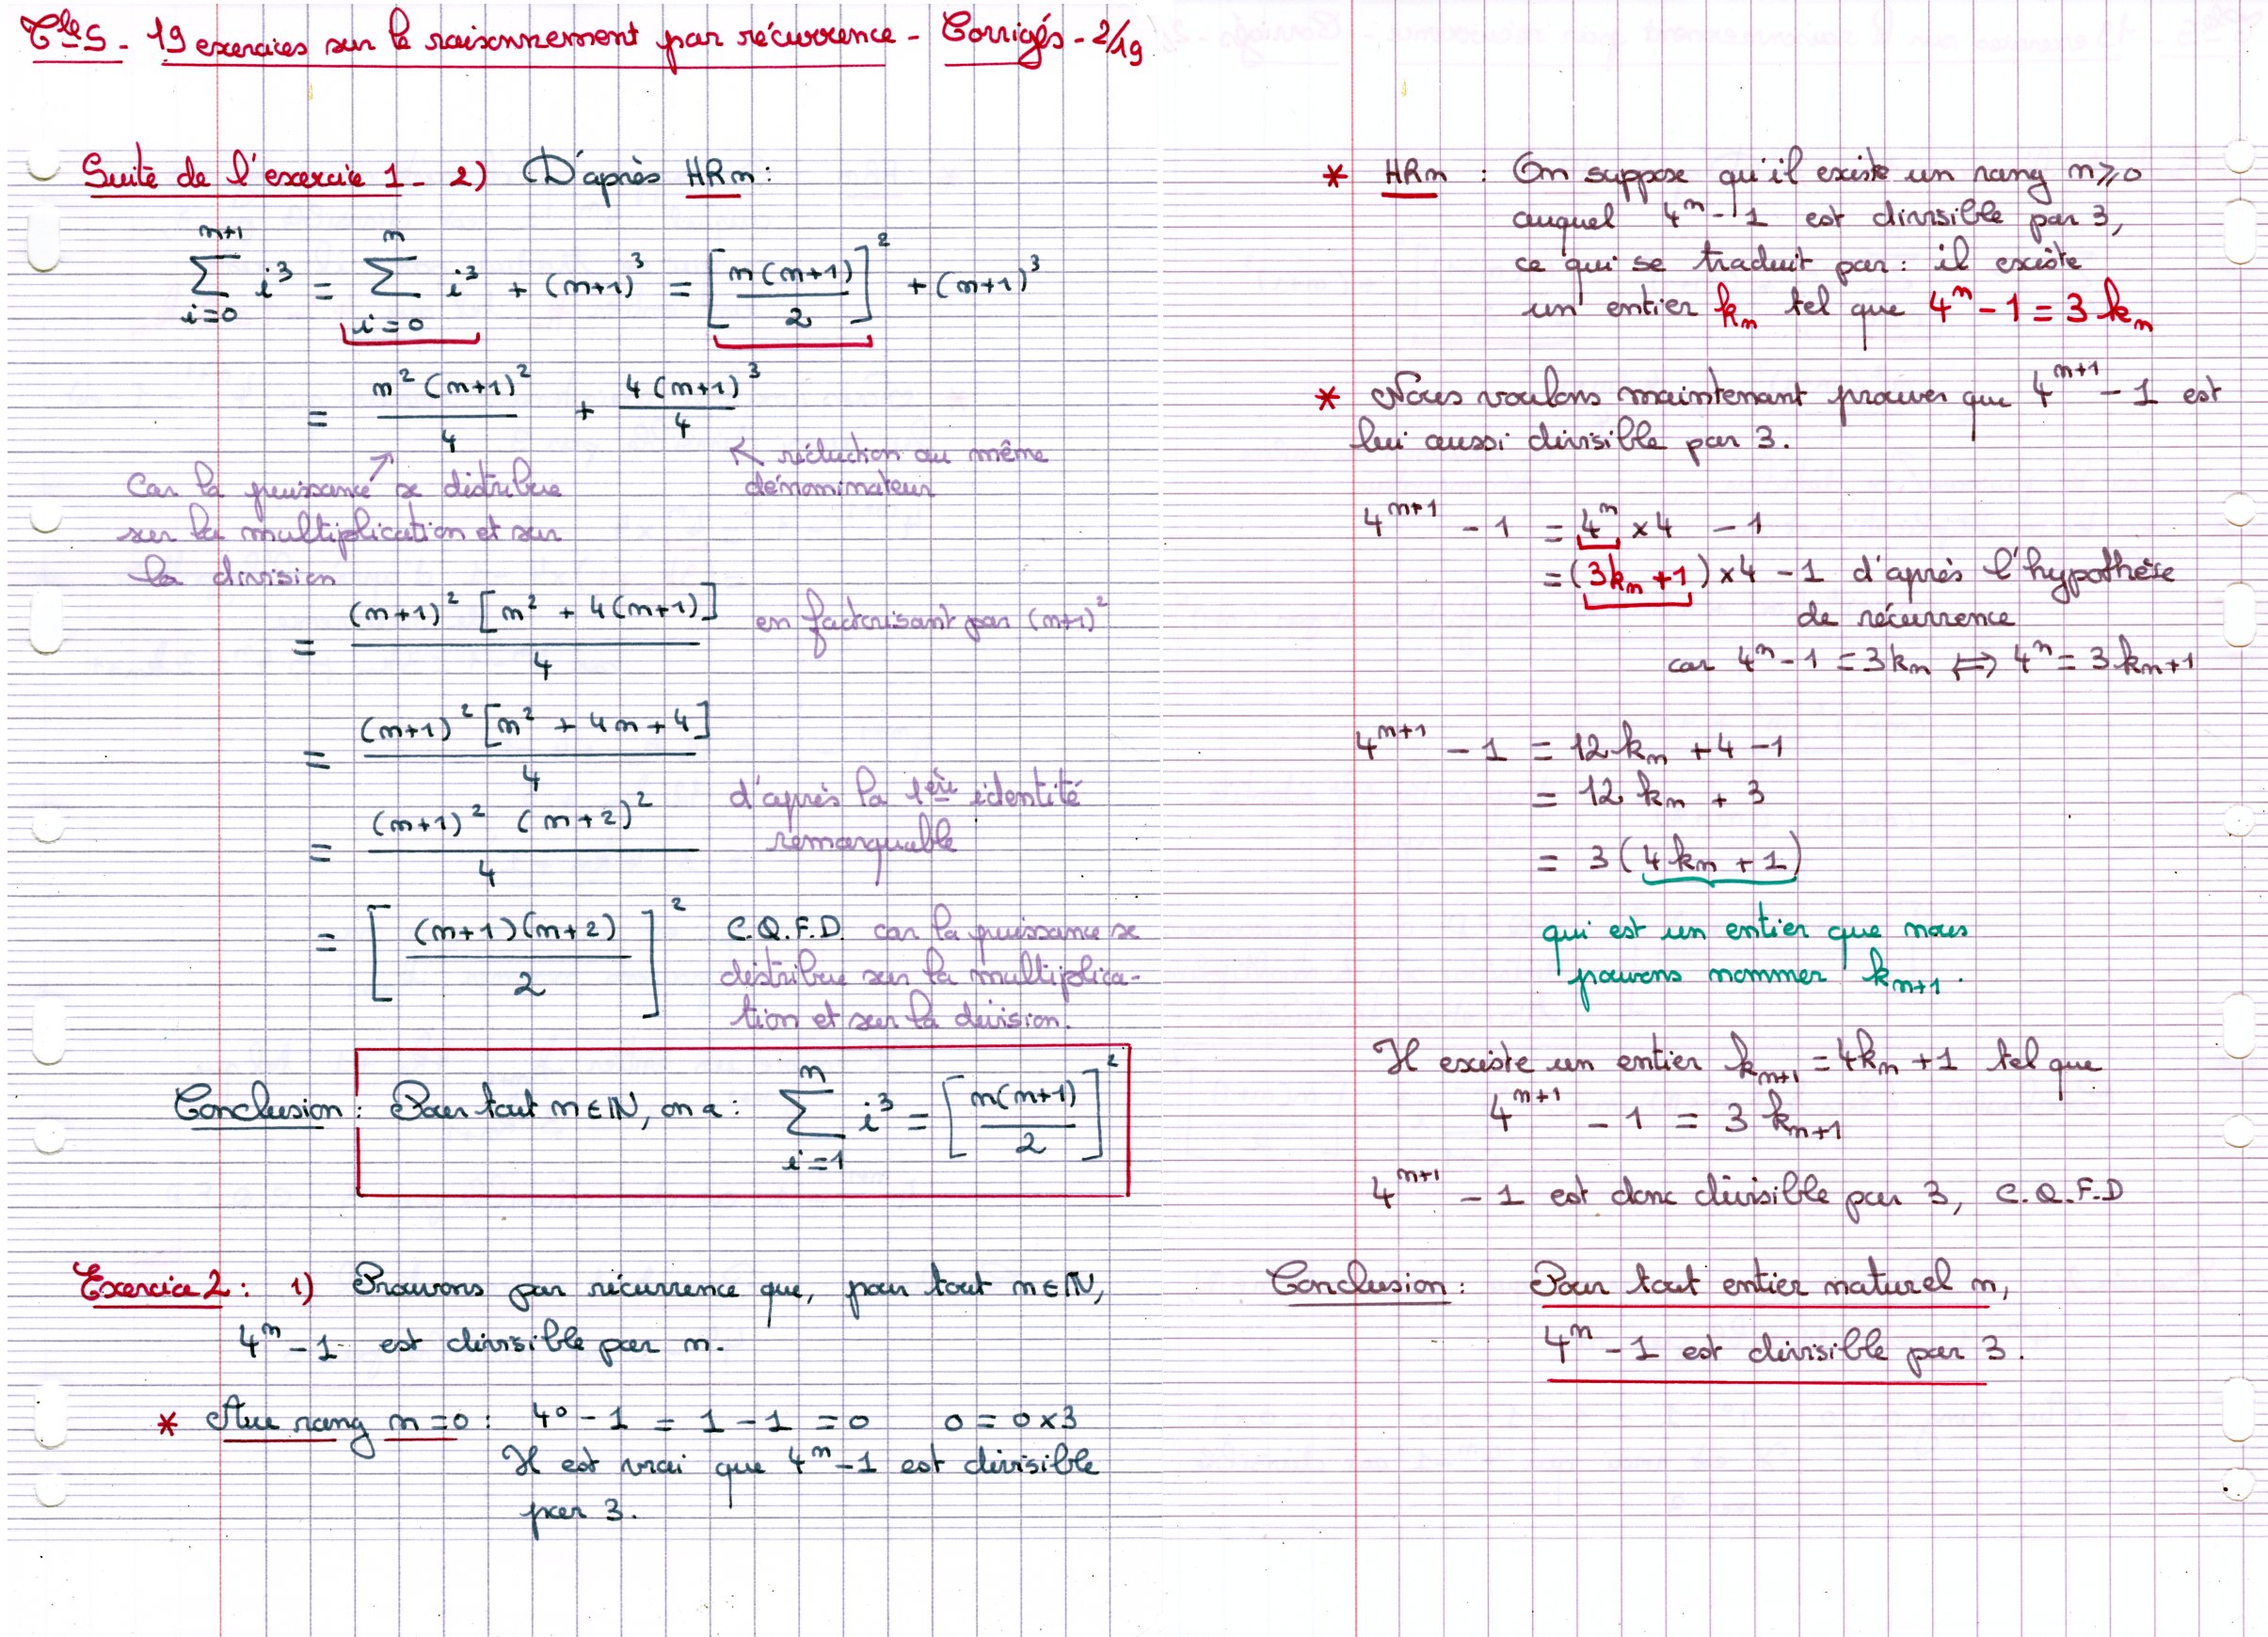 Tle S - 19 exercices sur le raisonnement par récurrence - Corrigés - 2/19
Suite de l'exercice 1 - 2) D'après HRn :
∑_{i=0}^{n+1} i³ = ∑_{i=0}^{n} i³ + (n+1)³ = [n(n+1)/2]² + (n+1)³
= n²(n+1)²/4 + 4(n+1)³/4
↖ réduction au même
dénominateur
Car la puissance ↗ se distribue
sur la multiplication et sur
la division
= (n+1)² [n² + 4(n+1)]/4 en factorisant par (n+1)²
= (n+1)² [n² + 4n + 4]/4
= (n+1)² (n+2)²/4 d'après la 1ère identité
remarquable
= [(n+1)(n+2)/2]² C.Q.F.D. car la puissance se
distribue sur la multiplica-
tion et sur la division.
Conclusion : Pour tout n ∈ ℕ, on a : ∑_{i=1}^{n} i³ = [n(n+1)/2]²
Exercice 2 : 1) Prouvons par récurrence que, pour tout n ∈ ℕ,
4ⁿ - 1 est divisible par n.
* Au rang n = 0 : 4⁰ - 1 = 1 - 1 = 0 0 = 0 × 3
Il est vrai que 4ⁿ - 1 est divisible
par 3.
* HRn : On suppose qu'il existe un rang n ⩾ 0
auquel 4ⁿ - 1 est divisible par 3,
ce qui se traduit par : il existe
un entier kₙ tel que 4ⁿ - 1 = 3 kₙ
* Nous voulons maintenant prouver que 4ⁿ⁺¹ - 1 est
lui aussi divisible par 3.
4ⁿ⁺¹ - 1 = 4ⁿ × 4 - 1
= (3kₙ + 1) × 4 - 1 d'après l'hypothèse
de récurrence
car 4ⁿ - 1 = 3kₙ ⟺ 4ⁿ = 3kₙ + 1
4ⁿ⁺¹ - 1 = 12 kₙ + 4 - 1
= 12 kₙ + 3
= 3 (4kₙ + 1)
qui est un entier que nous
pouvons nommer kₙ₊₁.
Il existe un entier kₙ₊₁ = 4kₙ + 1 tel que
4ⁿ⁺¹ - 1 = 3 kₙ₊₁
4ⁿ⁺¹ - 1 est donc divisible par 3, C.Q.F.D
Conclusion : Pour tout entier naturel n,
4ⁿ - 1 est divisible par 3.